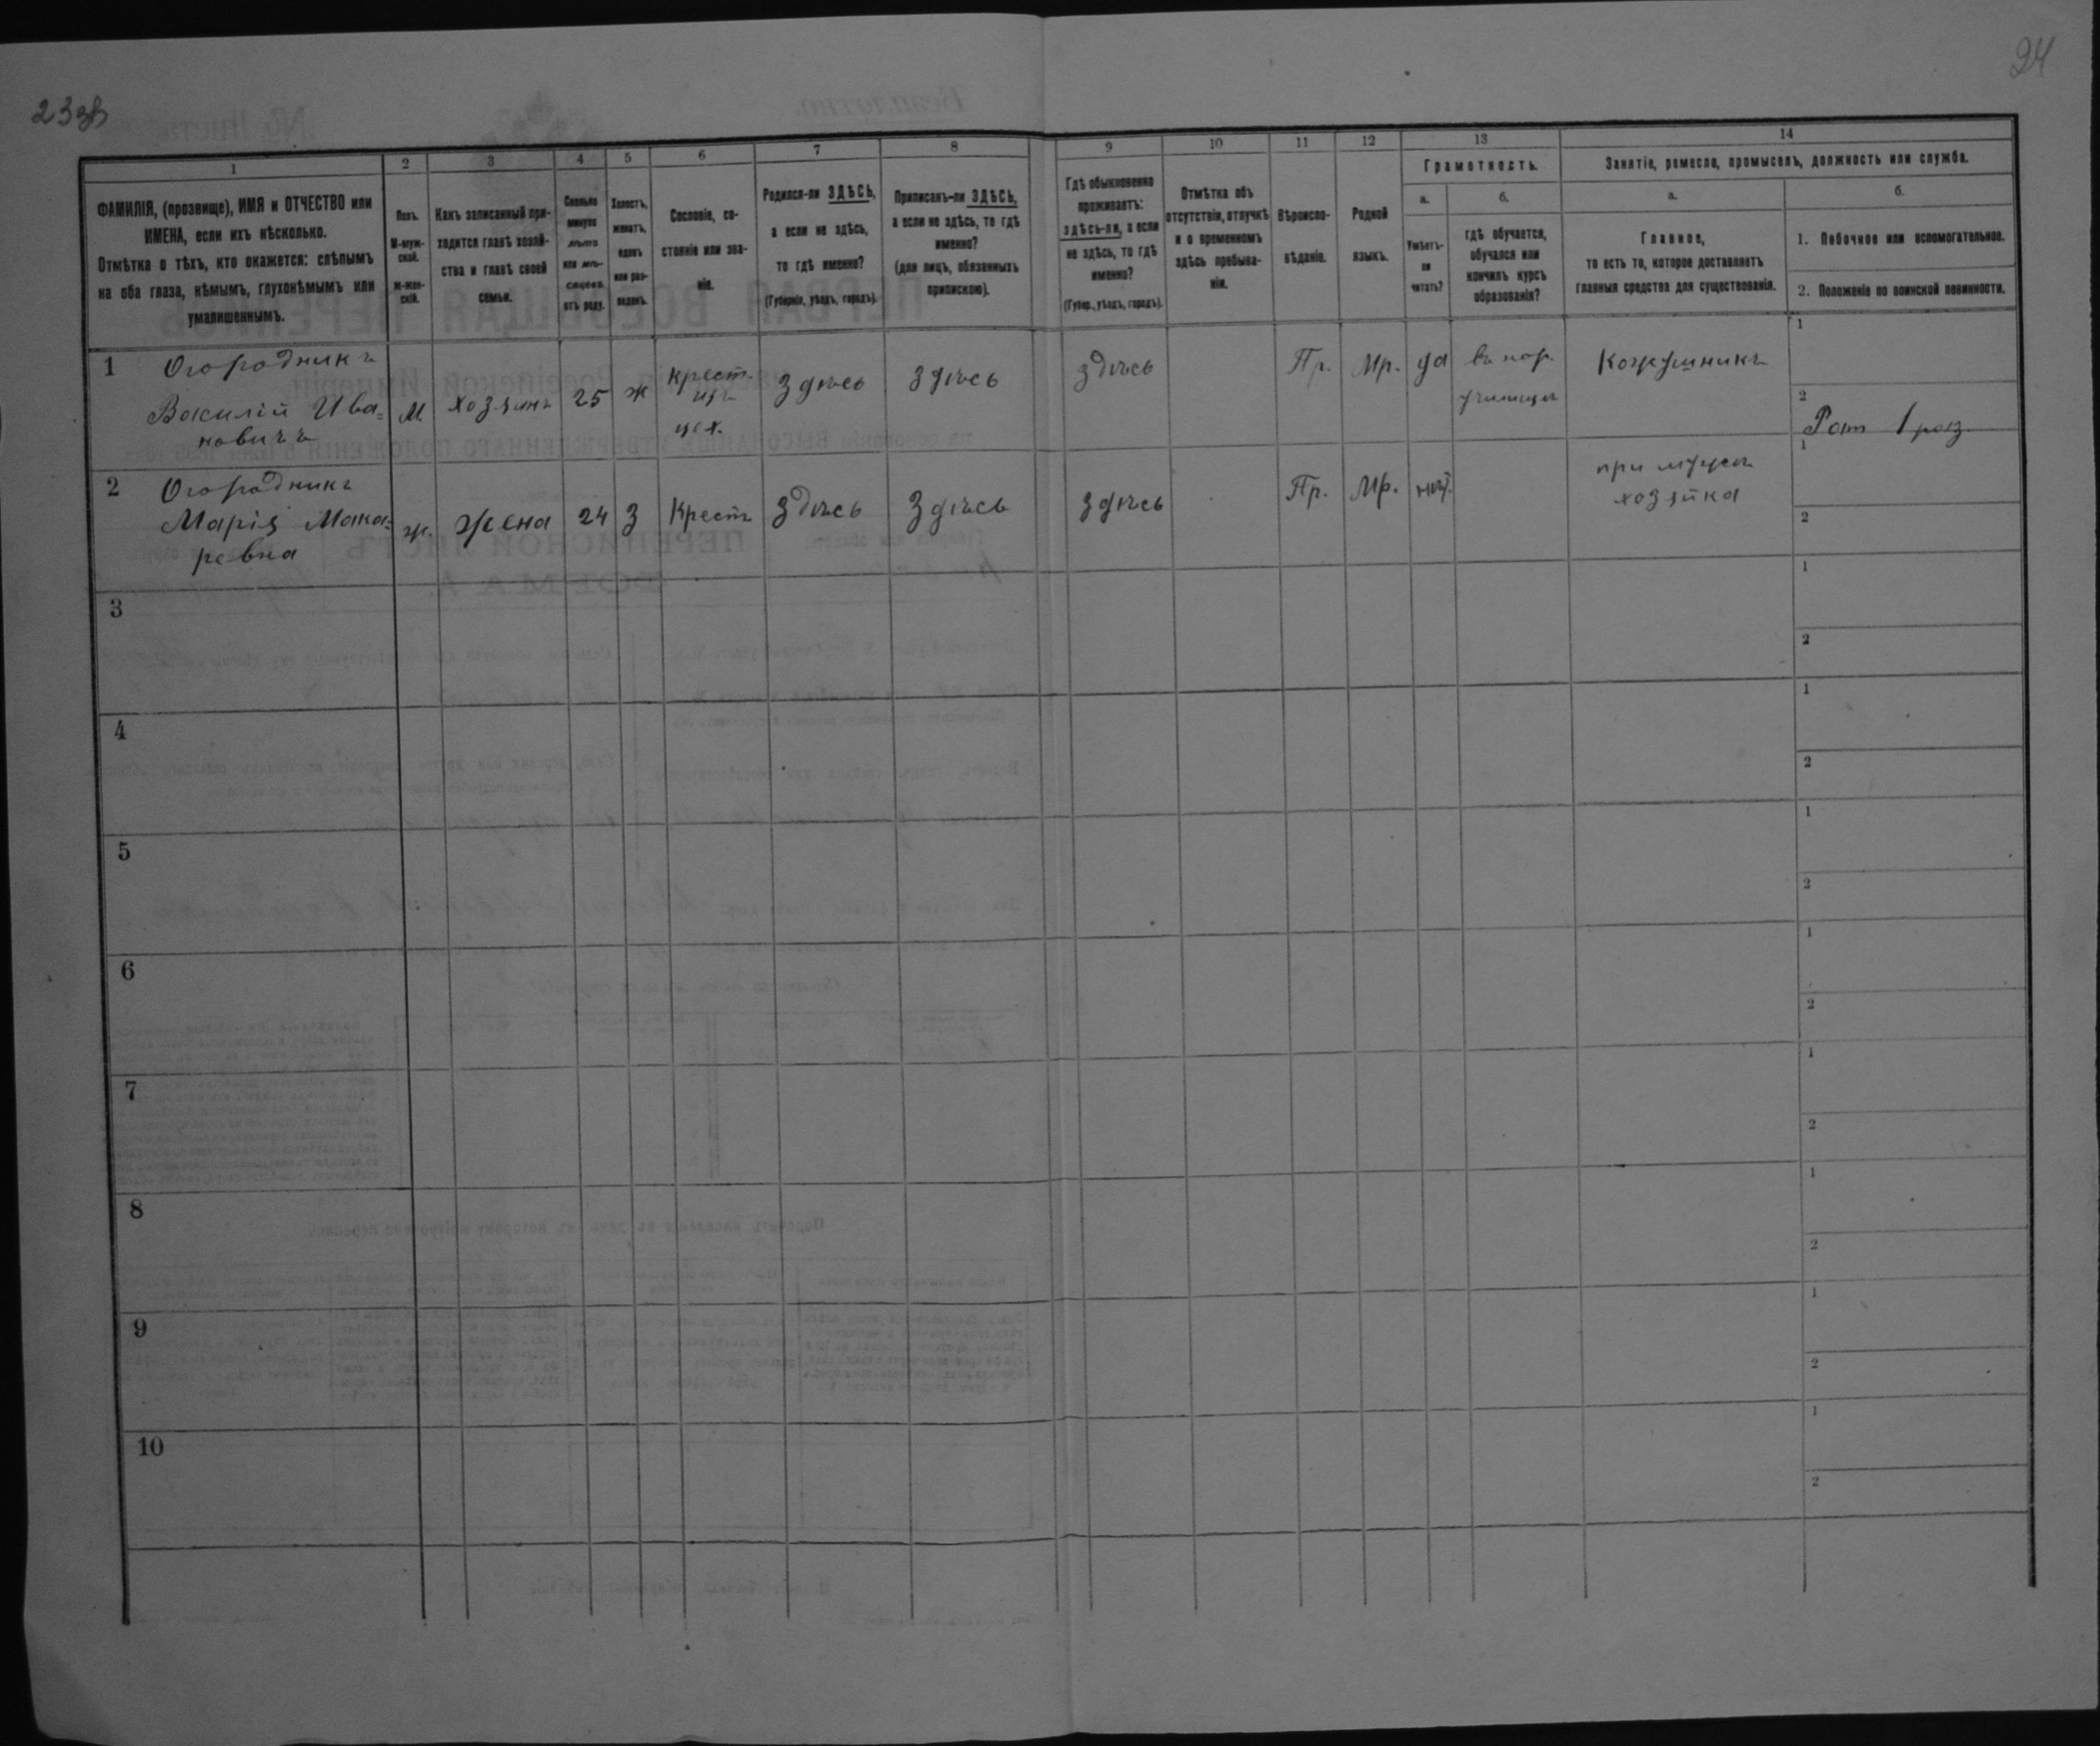 23зв
24
1
2
3
4
5
6
7
8
9
10
11
12
13
14
ФАМИЛІЯ, (прозвище), ИМЯ и ОТЧЕСТВО или
ИМЕНА, если ихъ нѣсколько.
Отмѣтка о тѣхъ, кто окажется: слѣпымъ
на оба глаза, нѣмымъ, глухонѣмымъ или
умалишеннымъ.
Полъ.
М-муж-
ской.
Ж-жен-
скій.
Какъ записанный при-
ходится главѣ хозяй-
ства и главѣ своей
семьи.
Сколько
минуло
лѣтъ
или мѣ-
сяцевъ
отъ роду.
Холостъ,
женатъ,
вдовъ
или раз-
веденъ.
Сословіе, со-
стояніе или зва-
ніе.
Родился-ли ЗДѢСЬ,
а если не здѣсь,
то гдѣ именно?
(Губернія, уѣздъ, городъ).
Приписанъ-ли ЗДѢСЬ,
а если не здѣсь, то гдѣ
именно?
(для лицъ, обязанныхъ
припискою).
Гдѣ обыкновенно
проживаетъ:
здѣсь-ли, а если
не здѣсь, то гдѣ
именно?
(Губер., уѣздъ, городъ).
Отмѣтка объ
отсутствіи, отлучкѣ
и о временномъ
здѣсь пребыва-
ніи.
Вѣроиспо-
вѣданіе.
Родной
языкъ.
Грамотность.
а.
Умѣетъ-
ли
читать?
б.
гдѣ обучается,
обучался или
кончилъ курсъ
образованія?
Занятіе, ремесло, промыселъ, должность или служба.
а.
Главное,
то есть то, которое доставляетъ
главныя средства для существованія.
б.
1. Побочное или вспомогательное.
2. Положеніе по воинской повинности.
1 Огородникъ
Василій Ива=
новичъ
М. хозяинъ 25 ж крест.
изъ
здѣсь здѣсь здѣсь Пр. Мр. да въ нар.
училищѣ
Кожушникъ
1
2
Рат 1 раз.
2 Огородникъ
Марія Мака=
ревна
ж. жена 24 з Крест здѣсь здѣсь здѣсь Пр. Мр. нѣт.
при мужѣ
хозяйка
1
2
3
1
2
4
1
2
5
1
2
6
1
2
7
1
2
8
1
2
9
1
2
10
1
2